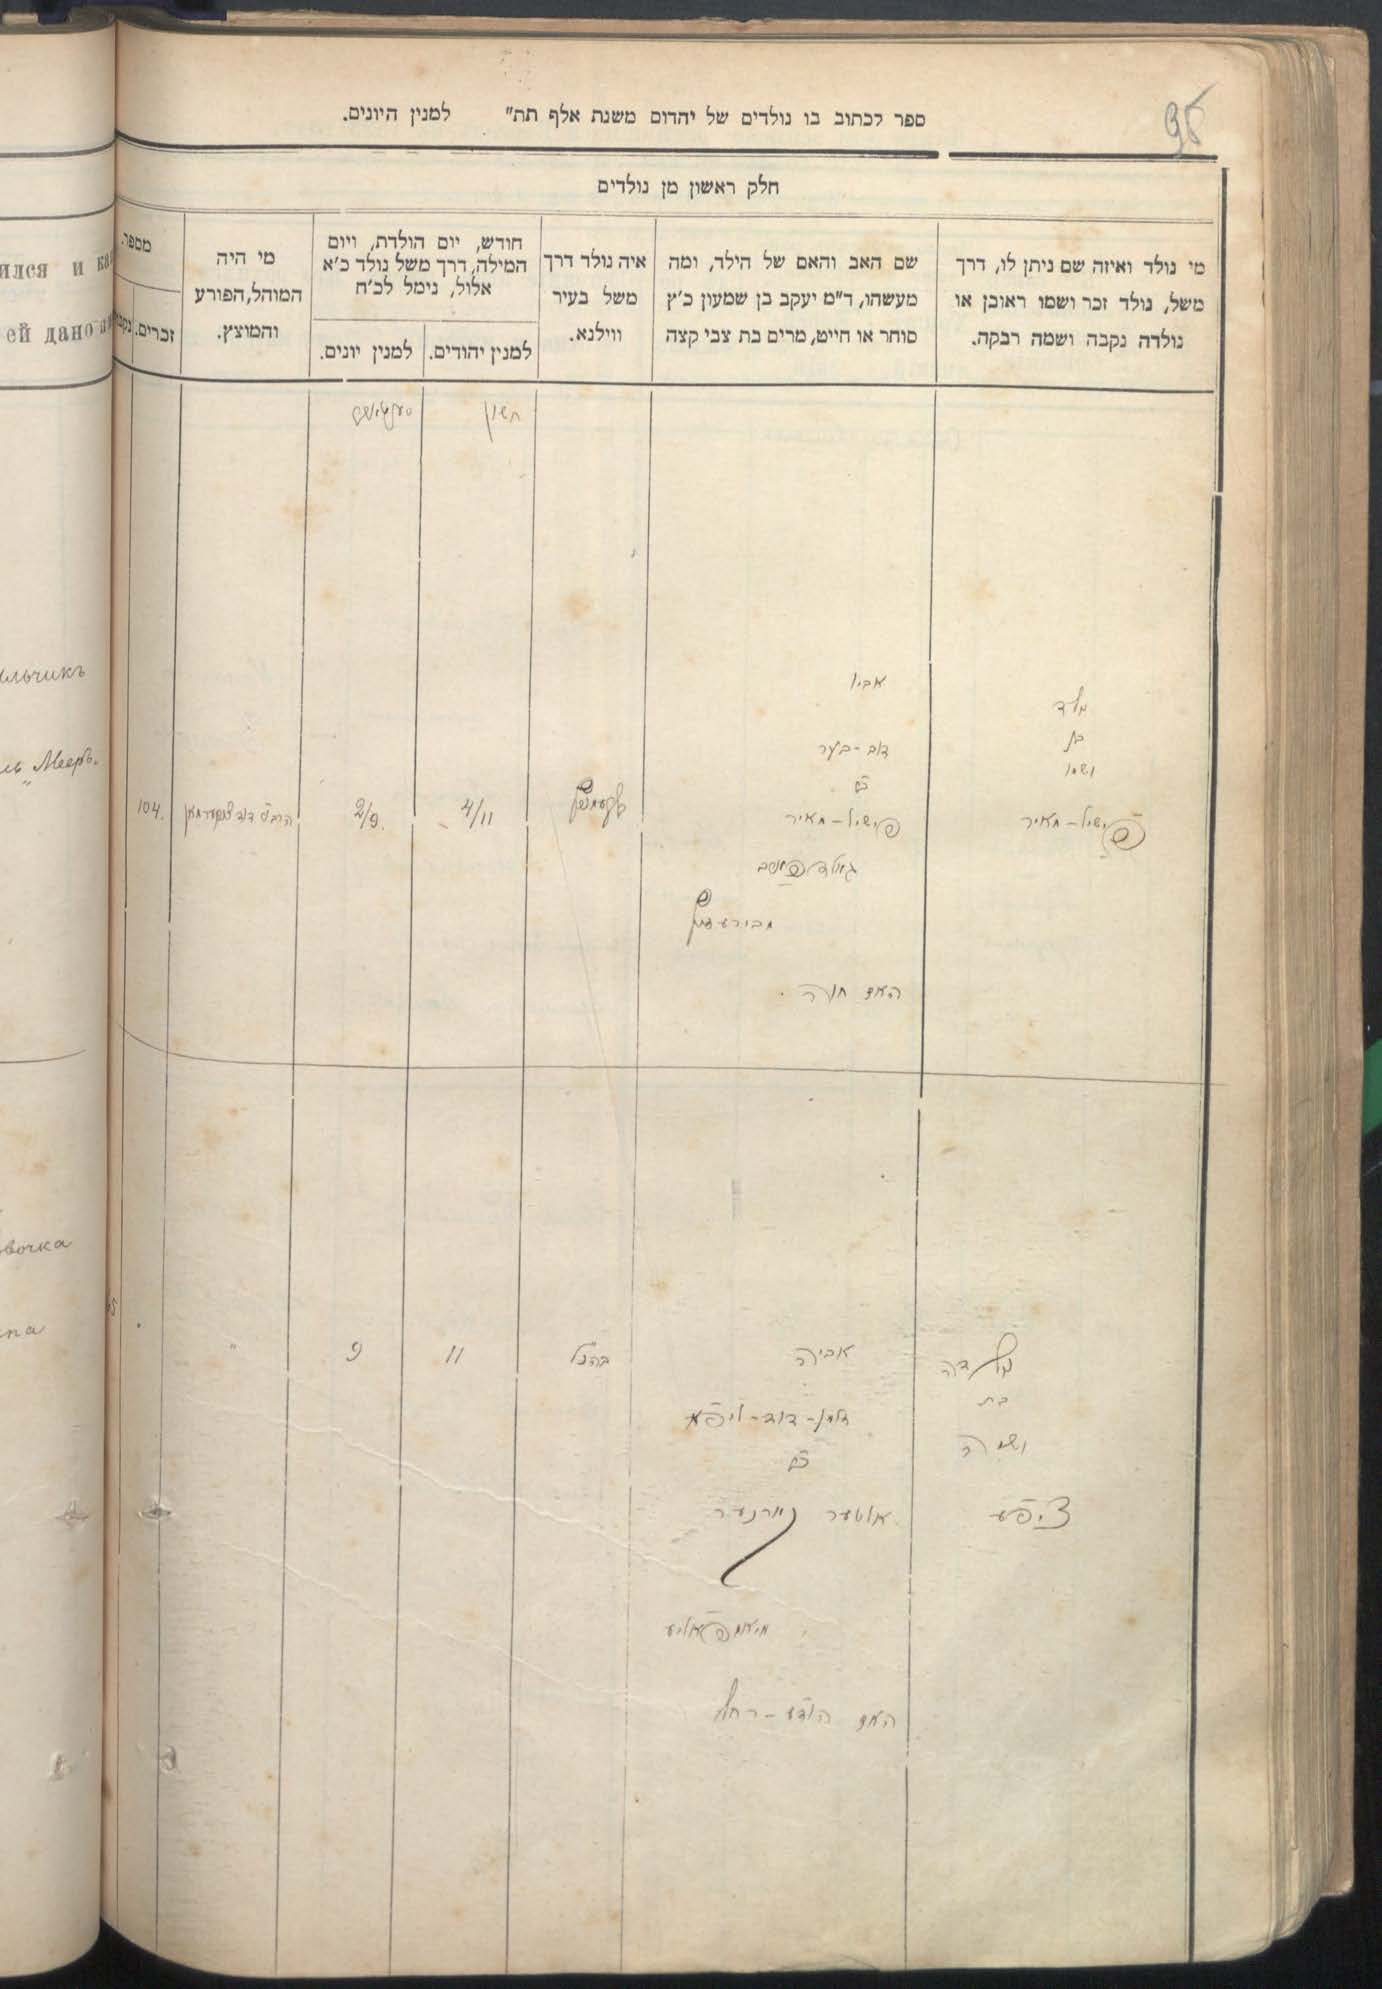 95
ספר לכתוב בו נולדים של יהדום משנת אלף תת" למנין היונים.
חלק ראשון מן נולדים
מי נולד ואיזה שם ניתן לו, דרך
משל, נולד זכר ושמו ראובן או
נולדה נקבה ושמה רבקה.
שם האב והאם של הילד, ומה
מעשהו, ד"מ יעקב בן שמעון כ"ץ
סוחר או חייט, מרים בת צבי קצה
איה נולד דרך
משל בעיר
ווילנא.
חודש, יום הולדת, ויום
המילה, דרך משל נולד כ'א
אלול, נימל לכ'ח
למנין יהודים.
למנין יונים.
מי היה
המוהל, הפורע
והמוצץ.
מספר.
זכרים.
חשון
נולד
בן
ושמו
פישל-מאיר
אביו
דוב-בער
ב"ר
פישל-מאיר
האם חנה
4/11
2/9.
104.
נולדה
בת
ושמה
ציפע
אביה
זלמן-דוד-ליפע
ב"ר
אלטער
האם הודע-רחל
בהנ"ל
11
9
"
ился и ка
ей дано
льчикъ
ль „Мееръ.
вочка
па